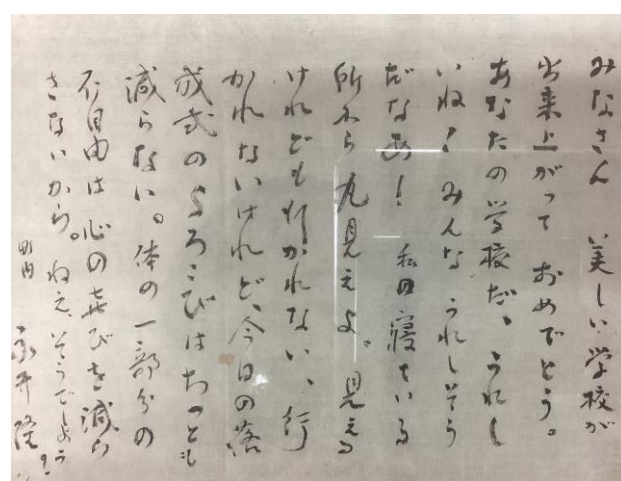 みなさん 美しい学校が
出来上がって おめでとう。
あなたの学校だ、うれし
いね! みんな うれしそう
だなあ! 私の寝ている
所から 丸見えよ。見える
けれども行かれない、行
かれないけれど、今日の落
成式のよろこびはちっとも
減らない。体の一部分の
不自由は 心の喜びを減ら
さないから。ねえ そうでしょう?
町内 永井隆